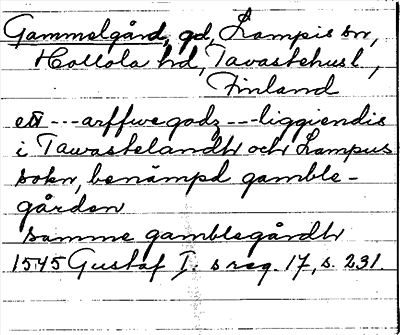 Gammelgård, gd, Lampis sn,
Hollola hd, Tavastehusl,
Finland
ett --- arffwegodz --- liggiendis
i Tawastelandh och Lampus
sokn, benämpd gamble-
gården
samme gamblegårdh
1545 Gustaf I. s reg. 17, s. 231.